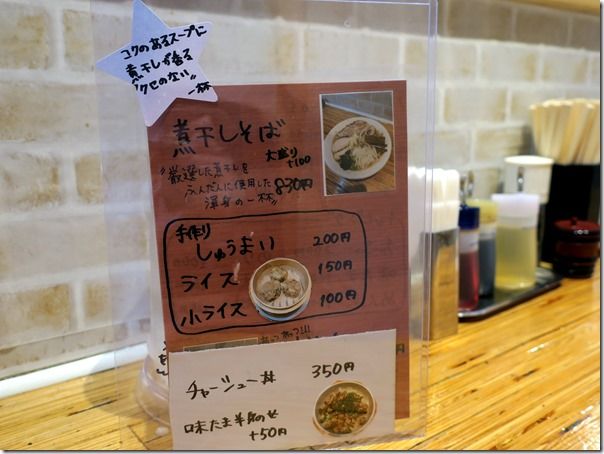 コクのあるスープに
煮干しが香る
クセのない〟
一杯
煮干しそば
大盛り
+100
〝厳選した煮干しを
ふんだんに使用した
渾身の一杯〟
830円
手作り
しゅうまい 200円
ライス 150円
小ライス 100円
チャーシュー丼 350円
味たま半分のせ
+50円